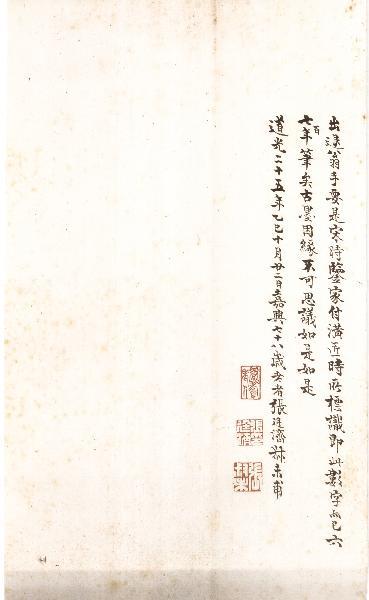 出溪翁手要是宋時鑒家付潢近時所標識即此數字亦已六
七百年筆矣古墨因緣不可思議如是如是
道光二十五年乙巳十月廿二日嘉興七十八歲老者張廷濟叔未甫
張廷濟印
張叔未